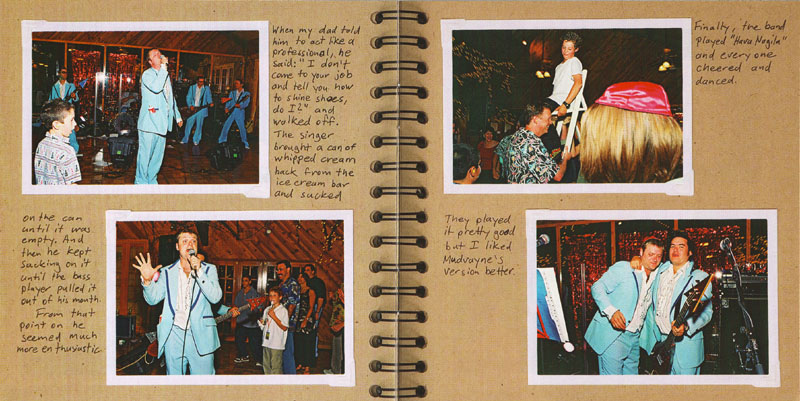 When my dad told
him to act like a
professional, he
said: "I don't
come to your job
and tell you how
to shine shoes,
do I?" and
walked off.
The singer
brought a can of
whipped cream
back from the
ice cream bar
and sucked
on the can
until it was
empty. And
then he kept
sucking on it
until the bass
player pulled it
out of his mouth.
From that
point on he
seemed much
more enthusiastic.
Finally, the band
played "Hava Nagila"
and everyone
cheered and
danced.
They played
it pretty good
but I liked
Mudvayne's
version better.